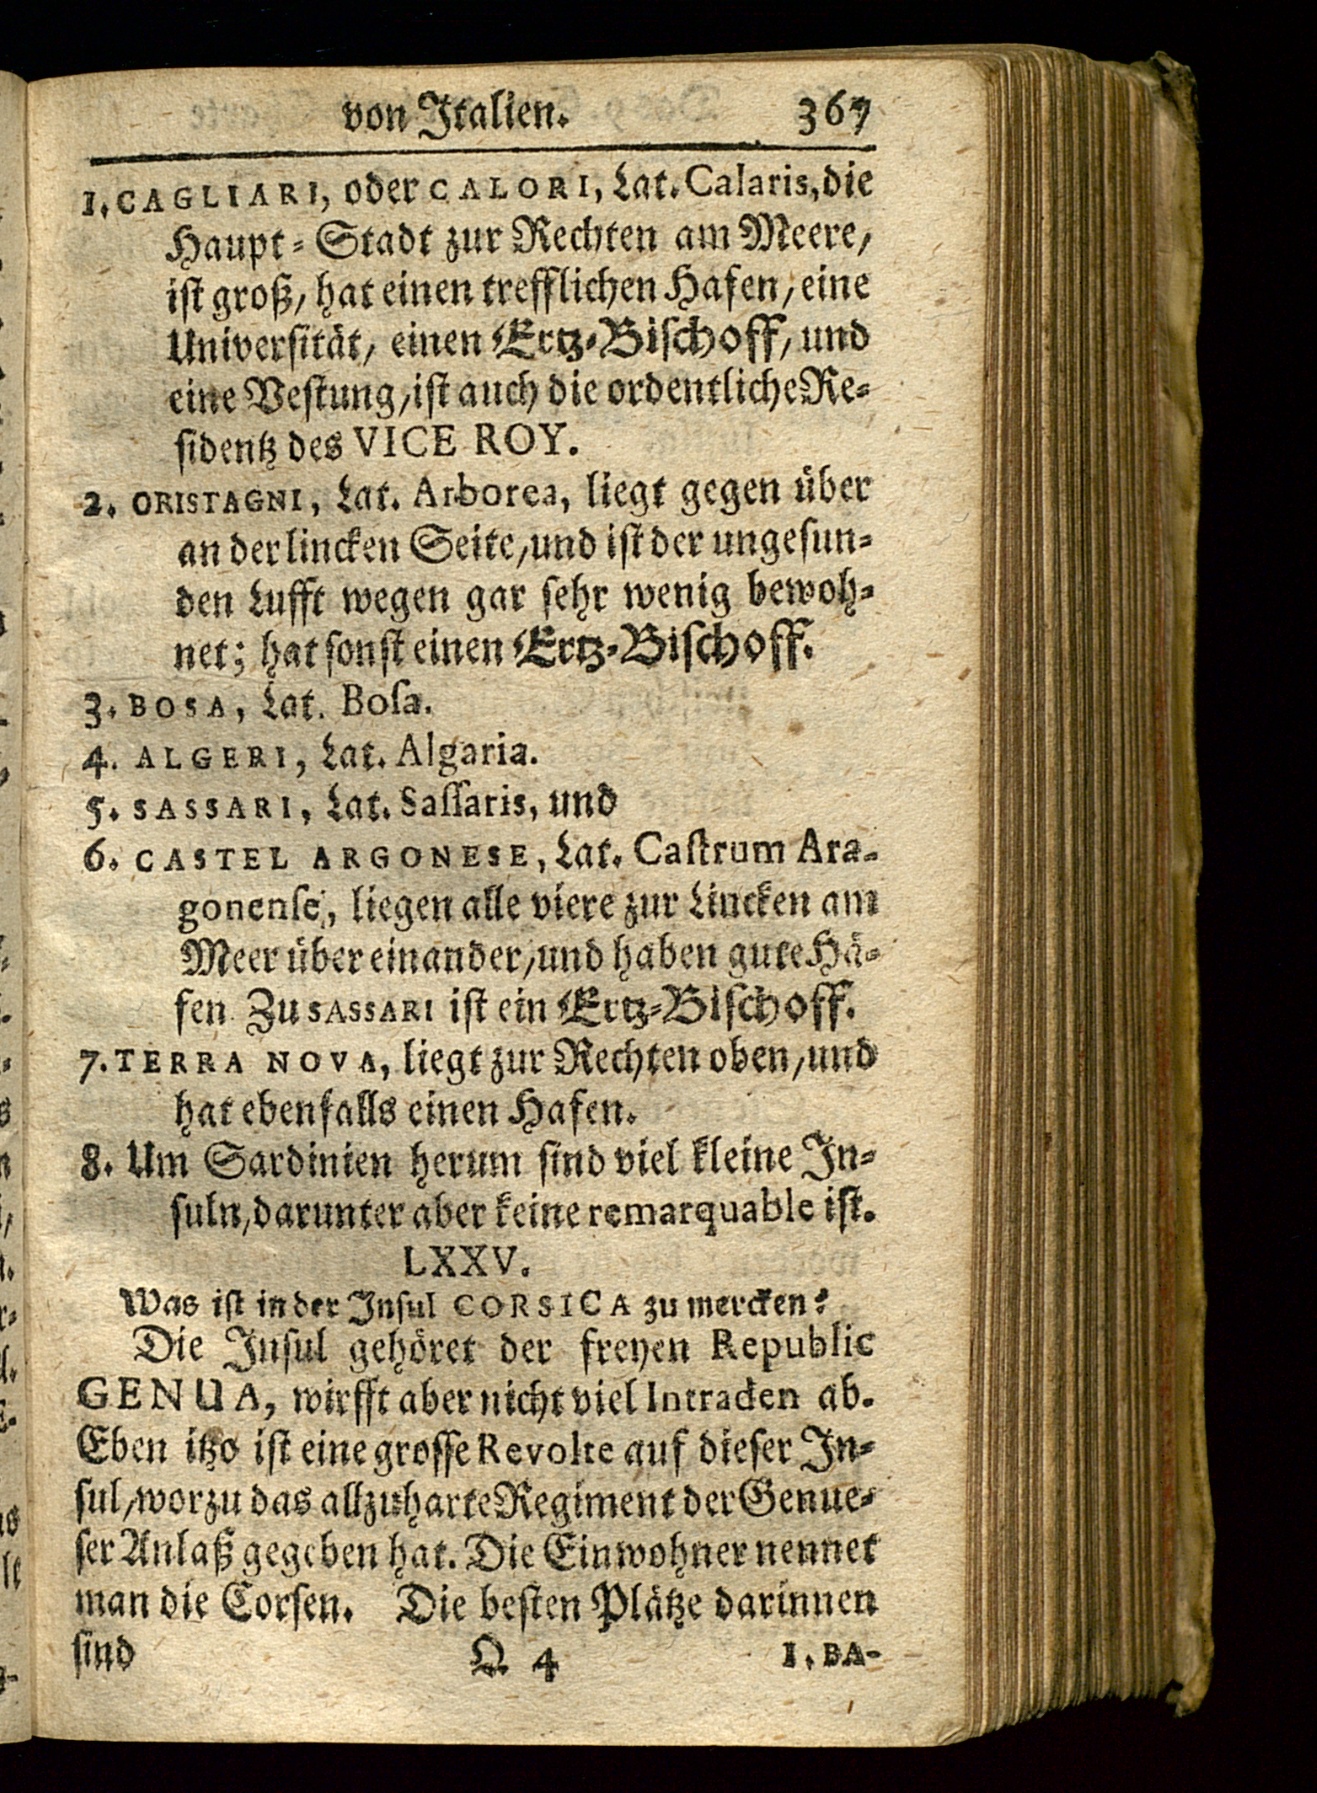 von Italien. 367
1. CAGLIARI, oder CALORI, Lat. Calaris, die
Haupt-Stadt zur Rechten am Meere,
ist groß, hat einen trefflichen Hafen, eine
Universität, einen Ertz-Bischoff, und
eine Vestung, ist auch die ordentliche Re-
sidentz des VICE ROY.
2. ORISTAGNI, Lat. Arborea, liegt gegen über
an der lincken Seite, und ist der ungesun-
den Lufft wegen gar sehr wenig bewoh-
net; hat sonst einen Ertz-Bischoff.
3. BOSA, Lat. Bosa.
4. ALGERI, Lat. Algaria.
5. SASSARI, Lat. Sassaris, und
6. CASTEL ARGONESE, Lat. Castrum Ara-
gonense, liegen alle viere zur Lincken am
Meer über einander, und haben gute Hä-
fen Zu SASSARI ist ein Ertz-Bischoff.
7. TERRA NOVA, liegt zur Rechten oben, und
hat ebenfalls einen Hafen.
8. Um Sardinien herum sind viel kleine In-
suln, darunter aber keine remarquable ist.
LXXV.
Was ist in der Insul CORSICA zu mercken?
Die Insul gehöret der freyen Republic
GENUA, wirfft aber nicht viel Intraden ab.
Eben itzo ist eine grosse Revolte auf dieser In-
sul, worzu das allzuharte Regiment der Genue-
ser Anlaß gegeben hat. Die Einwohner nennet
man die Corsen. Die besten Plätze darinnen
sind Q 4 1. BA-